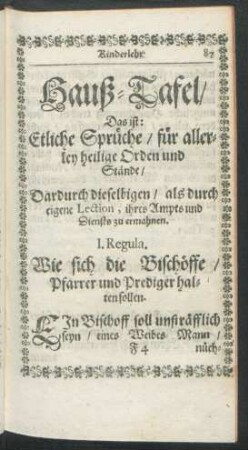 Kinderlehr. 87
Hauß-Tafel/
Das ist:
Etliche Sprüche / für aller-
ley heilige Orden und
Stände/
Dardurch dieselbigen / als durch
eigene Lection, ihres Ampts und
Diensts zu ermahnen.
I. Regula,
Wie sich die Bischöffe /
Pfarrer und Prediger hal-
ten sollen.
EIn Bischoff soll unsträfflich
seyn / eines Weibes Mann /
F 4 nüch-